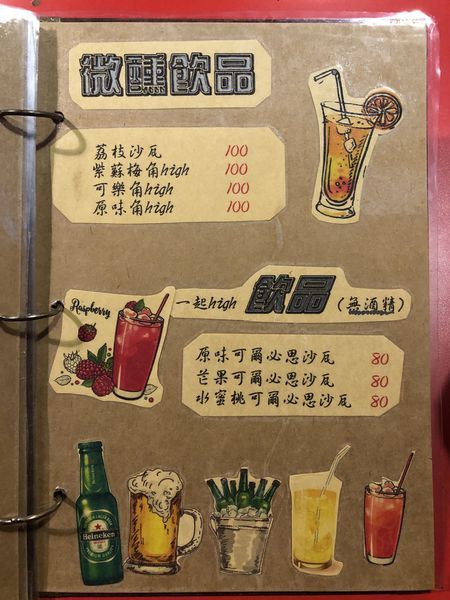 微醺飲品
荔枝沙瓦 100
紫蘇梅角high 100
可樂角high 100
原味角high 100
Raspberry
一起high 飲品 (無酒精)
原味可爾必思沙瓦 80
芒果可爾必思沙瓦 80
水蜜桃可爾必思沙瓦 80
Heineken